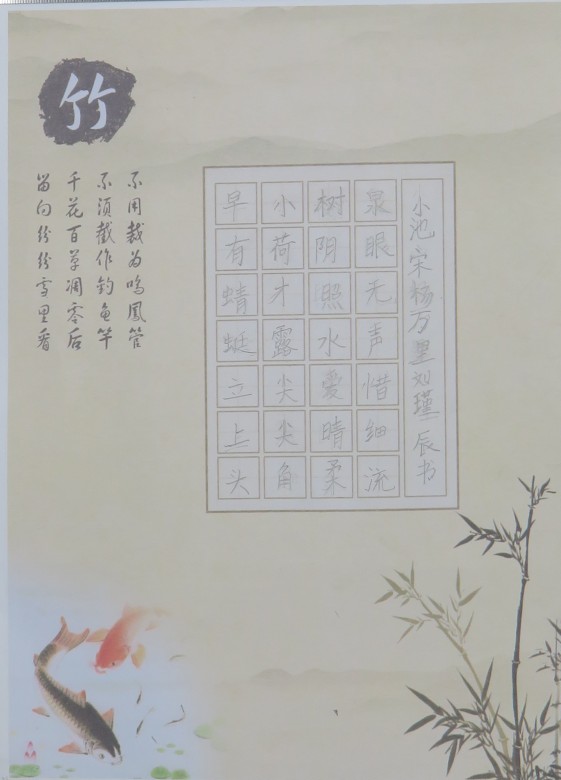 竹
不用裁为鸣凤管
不须截作钓鱼竿
千花百草凋零后
留向纷纷雪里看
小池 宋 杨万里 刘瑾辰书
泉眼无声惜细流
树阴照水爱晴柔
小荷才露尖尖角
早有蜻蜓立上头